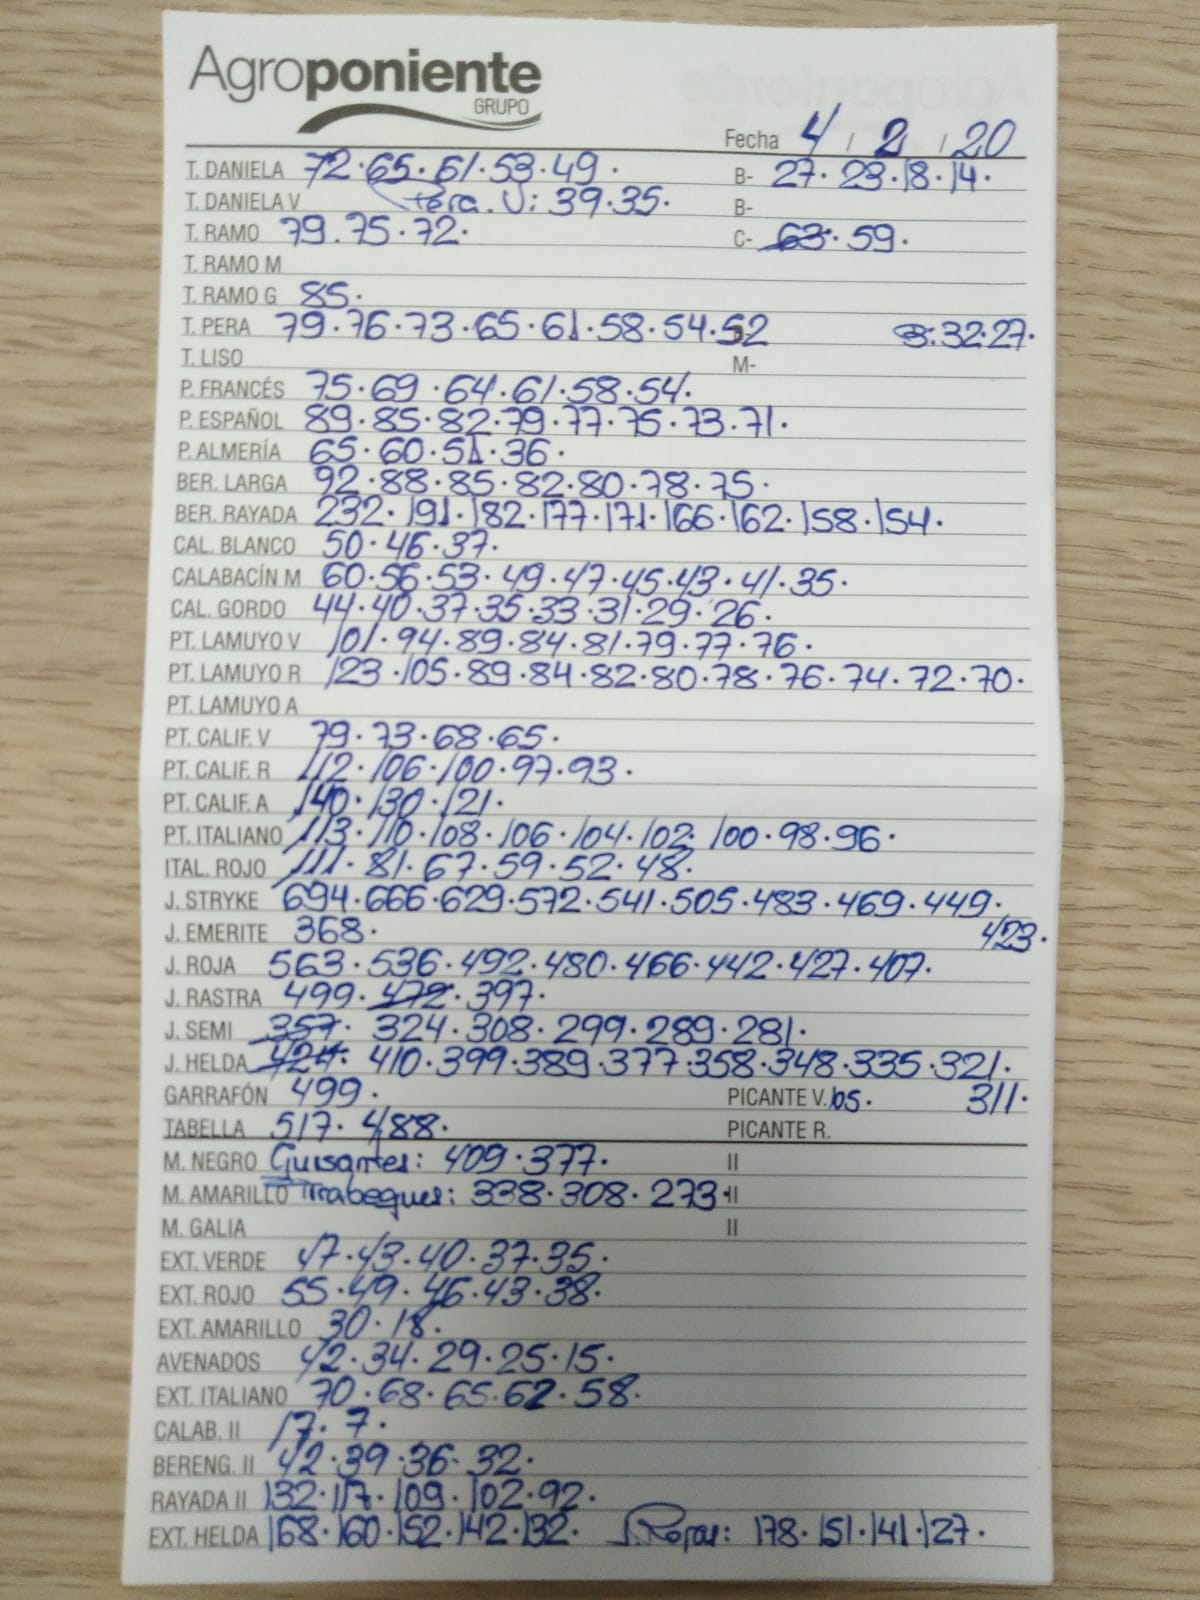 Agroponiente
GRUPO
Fecha 4 / 2 / 20
T. DANIELA 72·65·61·53·49· B- 27·23·18·14·
T. DANIELA V Pera. V: 39·35· B-
T. RAMO 79·75·72· C- 63·59·
T. RAMO M
T. RAMO G 85·
T. PERA 79·76·73·65·61·58·54·52 B:32·27·
T. LISO M-
P. FRANCÉS 75·69·64·61·58·54·
P. ESPAÑOL 89·85·82·79·77·75·73·71·
P. ALMERÍA 65·60·51·36·
BER. LARGA 92·88·85·82·80·78·75·
BER. RAYADA 232·191·182·177·171·166·162·158·154·
CAL. BLANCO 50·46·37·
CALABACÍN M 60·56·53·49·47·45·43·41·35·
CAL. GORDO 44·40·37·35·33·31·29·26·
PT. LAMUYO V 101·94·89·84·81·79·77·76·
PT. LAMUYO R 123·105·89·84·82·80·78·76·74·72·70·
PT. LAMUYO A
PT. CALIF. V 79·73·68·65·
PT. CALIF. R 112·106·100·97·93·
PT. CALIF. A 140·130·121·
PT. ITALIANO 113·110·108·106·104·102·100·98·96·
ITAL. ROJO 111·81·67·59·52·48·
J. STRYKE 694·666·629·572·541·505·483·469·449·
J. EMERITE 368· 423·
J. ROJA 563·536·492·480·466·442·427·407·
J. RASTRA 499·472·397·
J. SEMI 357·324·308·299·289·281·
J. HELDA 424·410·399·389·377·358·348·335·321·
GARRAFÓN 499· PICANTE V. 105· 311·
TABELLA 517·488· PICANTE R.
M. NEGRO Guisantes: 409·377· II
M. AMARILLO Trabeques: 338·308·273· II
M. GALIA II
EXT. VERDE 47·43·40·37·35·
EXT. ROJO 55·49·46·43·38·
EXT. AMARILLO 30·18·
AVENADOS 42·34·29·25·15·
EXT. ITALIANO 70·68·65·62·58·
CALAB. II 17·7·
BERENG. II 42·39·36·32·
RAYADA II 132·117·109·102·92·
EXT. HELDA 168·160·152·142·132· J. Rojas: 178·151·141·127·